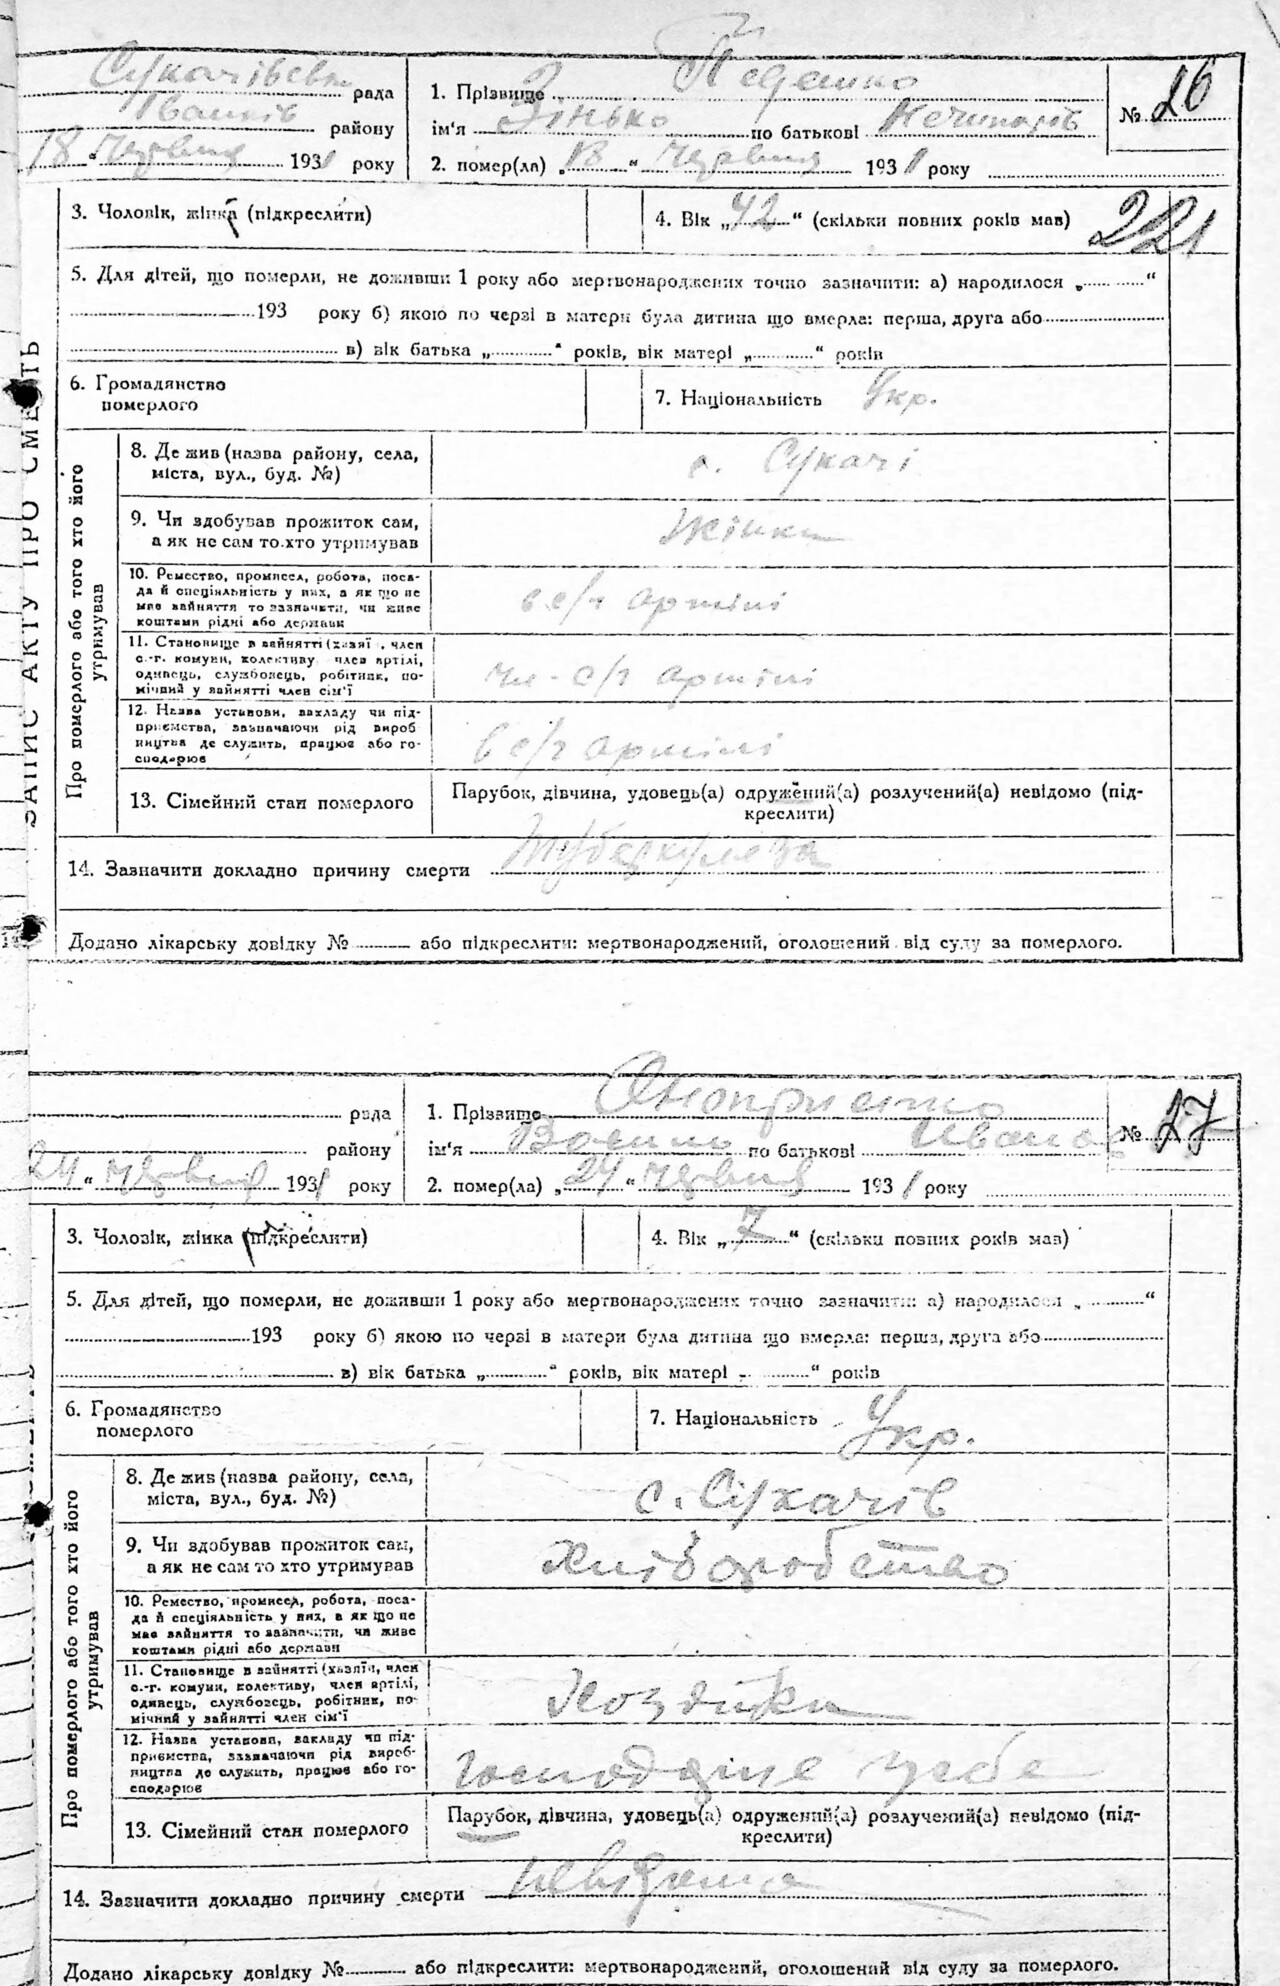 Сукачівська рада
Іванків району
18 " червня 1931 року
1. Прізвище Педешко
ім'я Зінько по батькові Нечипорів
2. помер(ла) „18 " червня 1931 року
№ 26
3. Чоловік, жінка (підкреслити)
4. Вік „42" (скільки повних років мав)
221
5. Для дітей, що померли, не доживши 1 року або мертвонароджених точно зазначити: а) народилося „ "
193 року б) якою по черзі в матери була дитина що вмерла: перша, друга або
в) вік батька „ " років, вік матері „ " років
6. Громадянство
померлого
7. Національність Укр.
ЗАПИС АКТУ ПРО СМЕРТЬ
Про померлого або того хто його
утримував
8. Де жив (назва району, села,
міста, вул., буд. №)
с. Сукачі
9. Чи здобував прожиток сам,
а як не сам то хто утримував
жінка
10. Ремество, промисел, робота, поса-
да й спеціяльність у них, а як що не
має зайняття то зазначити, чи живе
коштами рідні або держави
в с/г артілі
11. Становище в зайнятті (хазяї , член
с.-г. комуни, колективу член артілі,
одинець, службовець, робітник, по-
мічний у зайнятті член сім'ї
чл - с/г артілі
12. Назва установи, закладу чи під-
приємства, зазначаючи рід вироб
ництва де служить, працює або го-
сподарює
в с/г артілі
13. Сімейний стан померлого
Парубок, дівчина, удовець(а) одружений(а) розлучений(а) невідомо (під-
креслити)
14. Зазначити докладно причину смерти туберкульоза
Додано лікарську довідку № або підкреслити: мертвонароджений, оголошений від суду за померлого.
рада
району
24 " червня 1931 року
1. Прізвище Оноприенко
ім'я Василь по батькові Иванов
2. помер(ла) „24 " червня 1931 року
№ 27
3. Чоловік, жінка (підкреслити)
4. Вік „7" (скільки повних років мав)
5. Для дітей, що померли, не доживши 1 року або мертвонароджених точно зазначити: а) народилося „ "
193 року б) якою по черзі в матери була дитина що вмерла: перша, друга або
в) вік батька „ " років, вік матері „ " років
6. Громадянство
померлого
7. Національність Укр.
Про померлого або того хто його
утримував
8. Де жив (назва району, села,
міста, вул., буд. №)
с. Сукачів
9. Чи здобував прожиток сам,
а як не сам то хто утримував
хліборобство
10. Ремество, промисел, робота, поса-
да й спеціяльність у них, а як що не
має зайняття то зазначити, чи живе
коштами рідні або держави
11. Становище в зайнятті (хазяїн, член
с.-г. комуни, колективу, член артілі,
одинець, службовець, робітник, по-
мічний у зайнятті член сім'ї
12. Назва установи, закладу чи під-
приємства, зазначаючи рід вироб-
ництва де служить, працює або го-
сподарює
у себе
13. Сімейний стан померлого
Парубок, дівчина, удовець(а) одружений(а) розлучений(а) невідомо (під-
креслити)
14. Зазначити докладно причину смерти невідома
Додано лікарську довідку № або підкреслити: мертвонароджений, оголошений від суду за померлого.